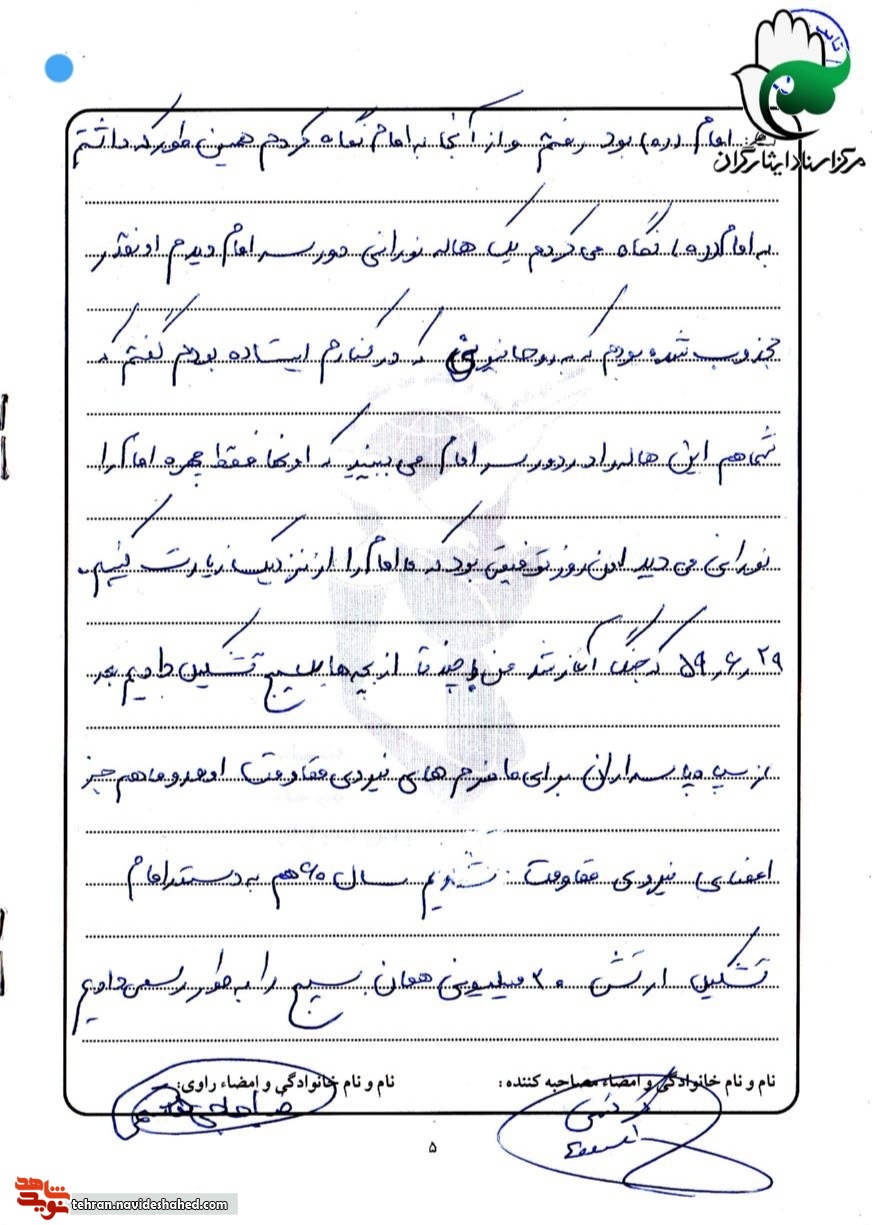 تایید
مرکز اسناد ایثارگران
امام (ره) بود رفتم و از آنجا به امام نگاه کردم همین طور که داشتم
به امام (ره) نگاه می کردم یک هاله نورانی دور سر امام دیدم اونقدر
مجذوب شده بودم که به روحانیونی که در کنارم ایستاده بودم گفتم که
شما هم این هاله را در دور سر امام می بینید که اونها فقط چهره امام را
نورانی می دید اون روز توفیقی بود که ما امام را از نزدیک زیارت کنیم.
۵۹٫۶٫۲۹ که جنگ آغاز شد من با چند تا از بچه ها بسیج تشکیل دادیم بعد
از سپاه پاسداران برای ما فرم های نیروی مقاومت اومد و ما هم جز
اعضای نیروی مقاومت شدیم سال ۶۰ هم به دستور امام
تشکیل ارتش ۲۰ میلیونی همان بسیج را به طور رسمی دادیم
نام و نام خانوادگی و امضاء مصاحبه کننده :
نام و نام خانوادگی و امضاء راوی:
۵
نوید شاهد
tehran.navideshahed.com